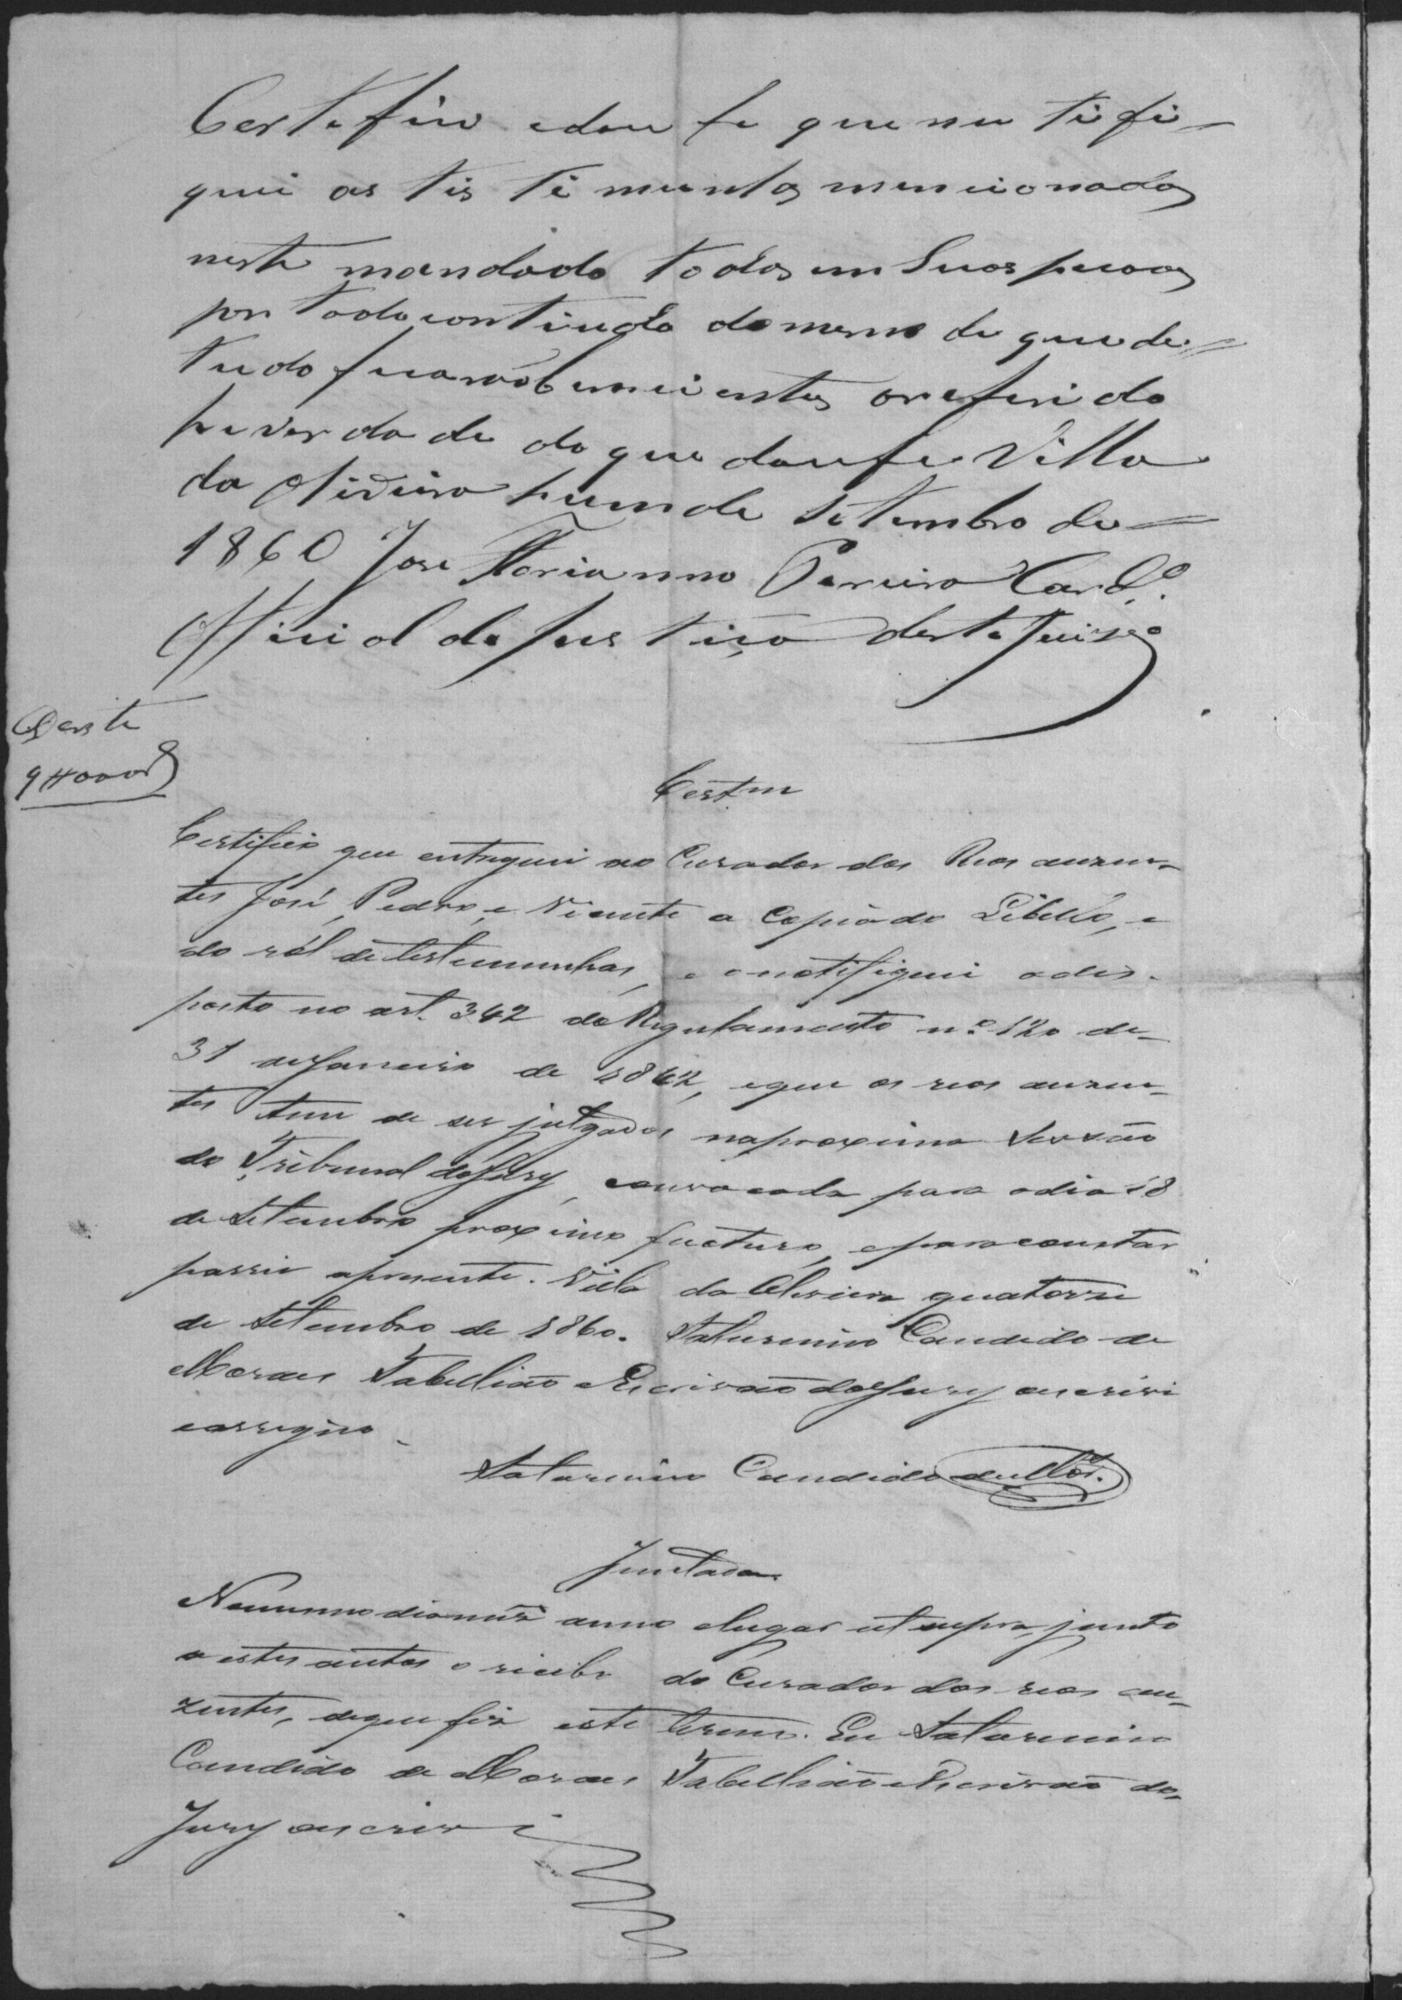 Certefico edou fe que nutifi-
quei as tistimunhas mencionadas
neste mandado todos em Suas pecoas
por todo contiudo do mesmo de que de
tudo ficarão bem cientes o referido
he verdade do que dou fe Villa
da Oliveira hum de Setembro de
1860 Jose Florianno Pereira Card.º
Official de Justiça deste Juizo
Deste
9#000
Certm
Certifico que entreguei ao Curador dos Reos auzen-
tes José, Pedro, e Vicente a Copia do Libello, e
do ról de testemunhas, e o notifiquei o dis-
posto no art. 342 do Regulamento n.º 120 de
31 de Janeiro de 1842, e que os reos auzen-
tes tem de ser julgados na proxima Sessão
do Tribunal do Jury, convocada para o dia 18
de Setembro proximo fucturo, e para constar
passei a presente. Villa da Oliveira quatorze
de Setembro de 1860. Saturnino Candido de
Moraes Tabellião e Escrivão do Jury o escrivi
e assigno
Saturnino Candido de Mor.
Juntada
No mesmo dia mez anno e lugar ut supra, junto
a estes autos o recibo do Curador dos reos au-
zentes, de que fiz este termo. Eu Saturnino
Candido de Moraes Tabellião e Escrivão do
Jury o escrivi